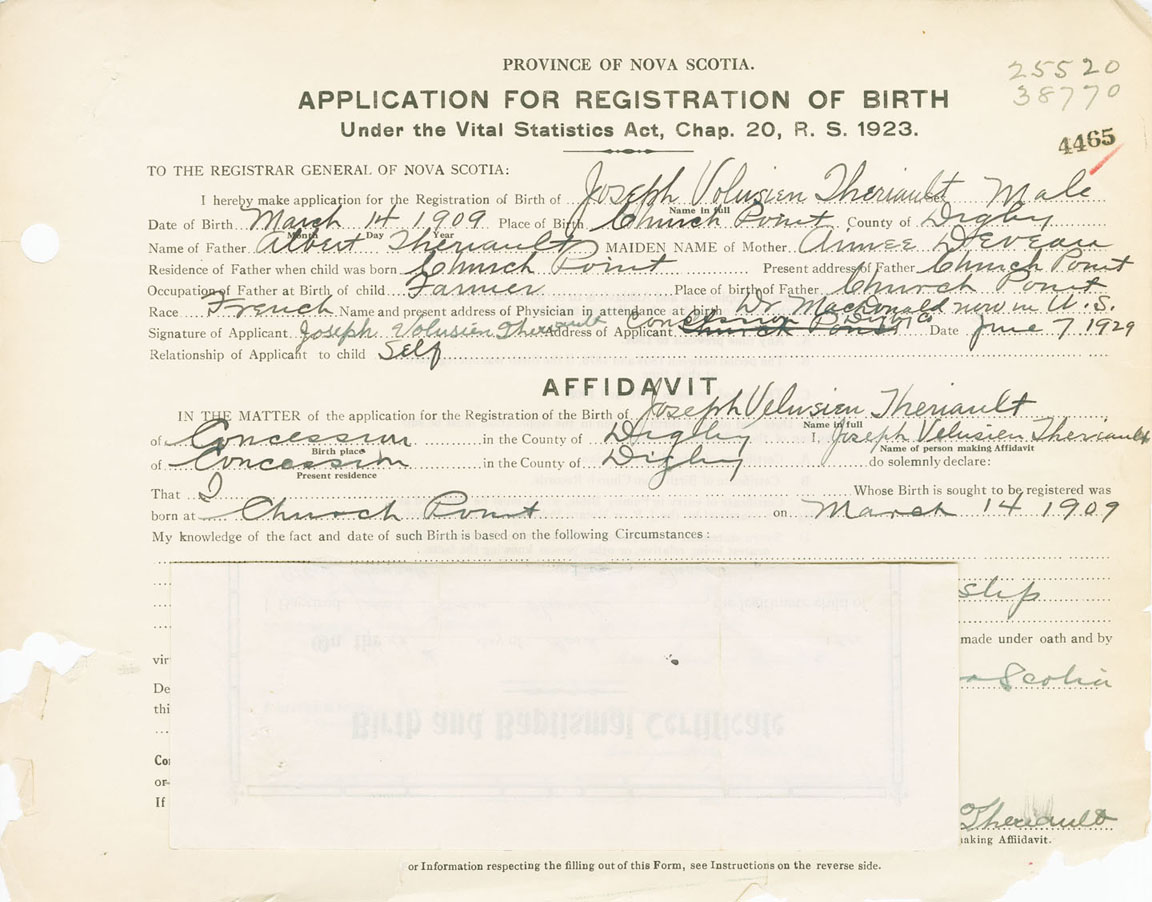 PROVINCE OF NOVA SCOTIA.
25520
APPLICATION FOR REGISTRATION OF BIRTH
38770
Under the Vital Statistics Act, Chap. 20, R. S. 1923.
4465
TO THE REGISTRAR GENERAL OF NOVA SCOTIA:
I hereby make application for the Registration of Birth of Joseph Volusien Theriault Male
Name in full
Date of Birth March 14 1909 Place of Birth Church Point County of Digby
Month Day Year
Name of Father Albert Theriault MAIDEN NAME of Mother Aimee Deveau
Residence of Father when child was born Church Point Present address of Father Church Point
Occupation of Father at Birth of child Farmer Place of birth of Father Church Point
Race French Name and present address of Physician in attendance at birth Dr. MacDonald now in U. S.
Signature of Applicant Joseph Volusien Theriault Address of Applicant Concession Digby Co Church Point Date June 7 1929
Relationship of Applicant to child Self
AFFIDAVIT
IN THE MATTER of the application for the Registration of the Birth of Joseph Velusien Theriault
Name in full
of Concession in the County of Digby I, Joseph Velusien Theriault
Birth place
Name of person making Affidavit
of Concession in the County of Digby do solemnly declare:
Present residence
That I Whose Birth is sought to be registered was
born at Church Point on March 14 1909
My knowledge of the fact and date of such Birth is based on the following Circumstances:
slip
made under oath and by
vir
Scotia
De
thi
Birth and Baptismal Certificate
Co
or
If
Theriault
making Affidavit.
or Information respecting the filling out of this Form, see Instructions on the reverse side.